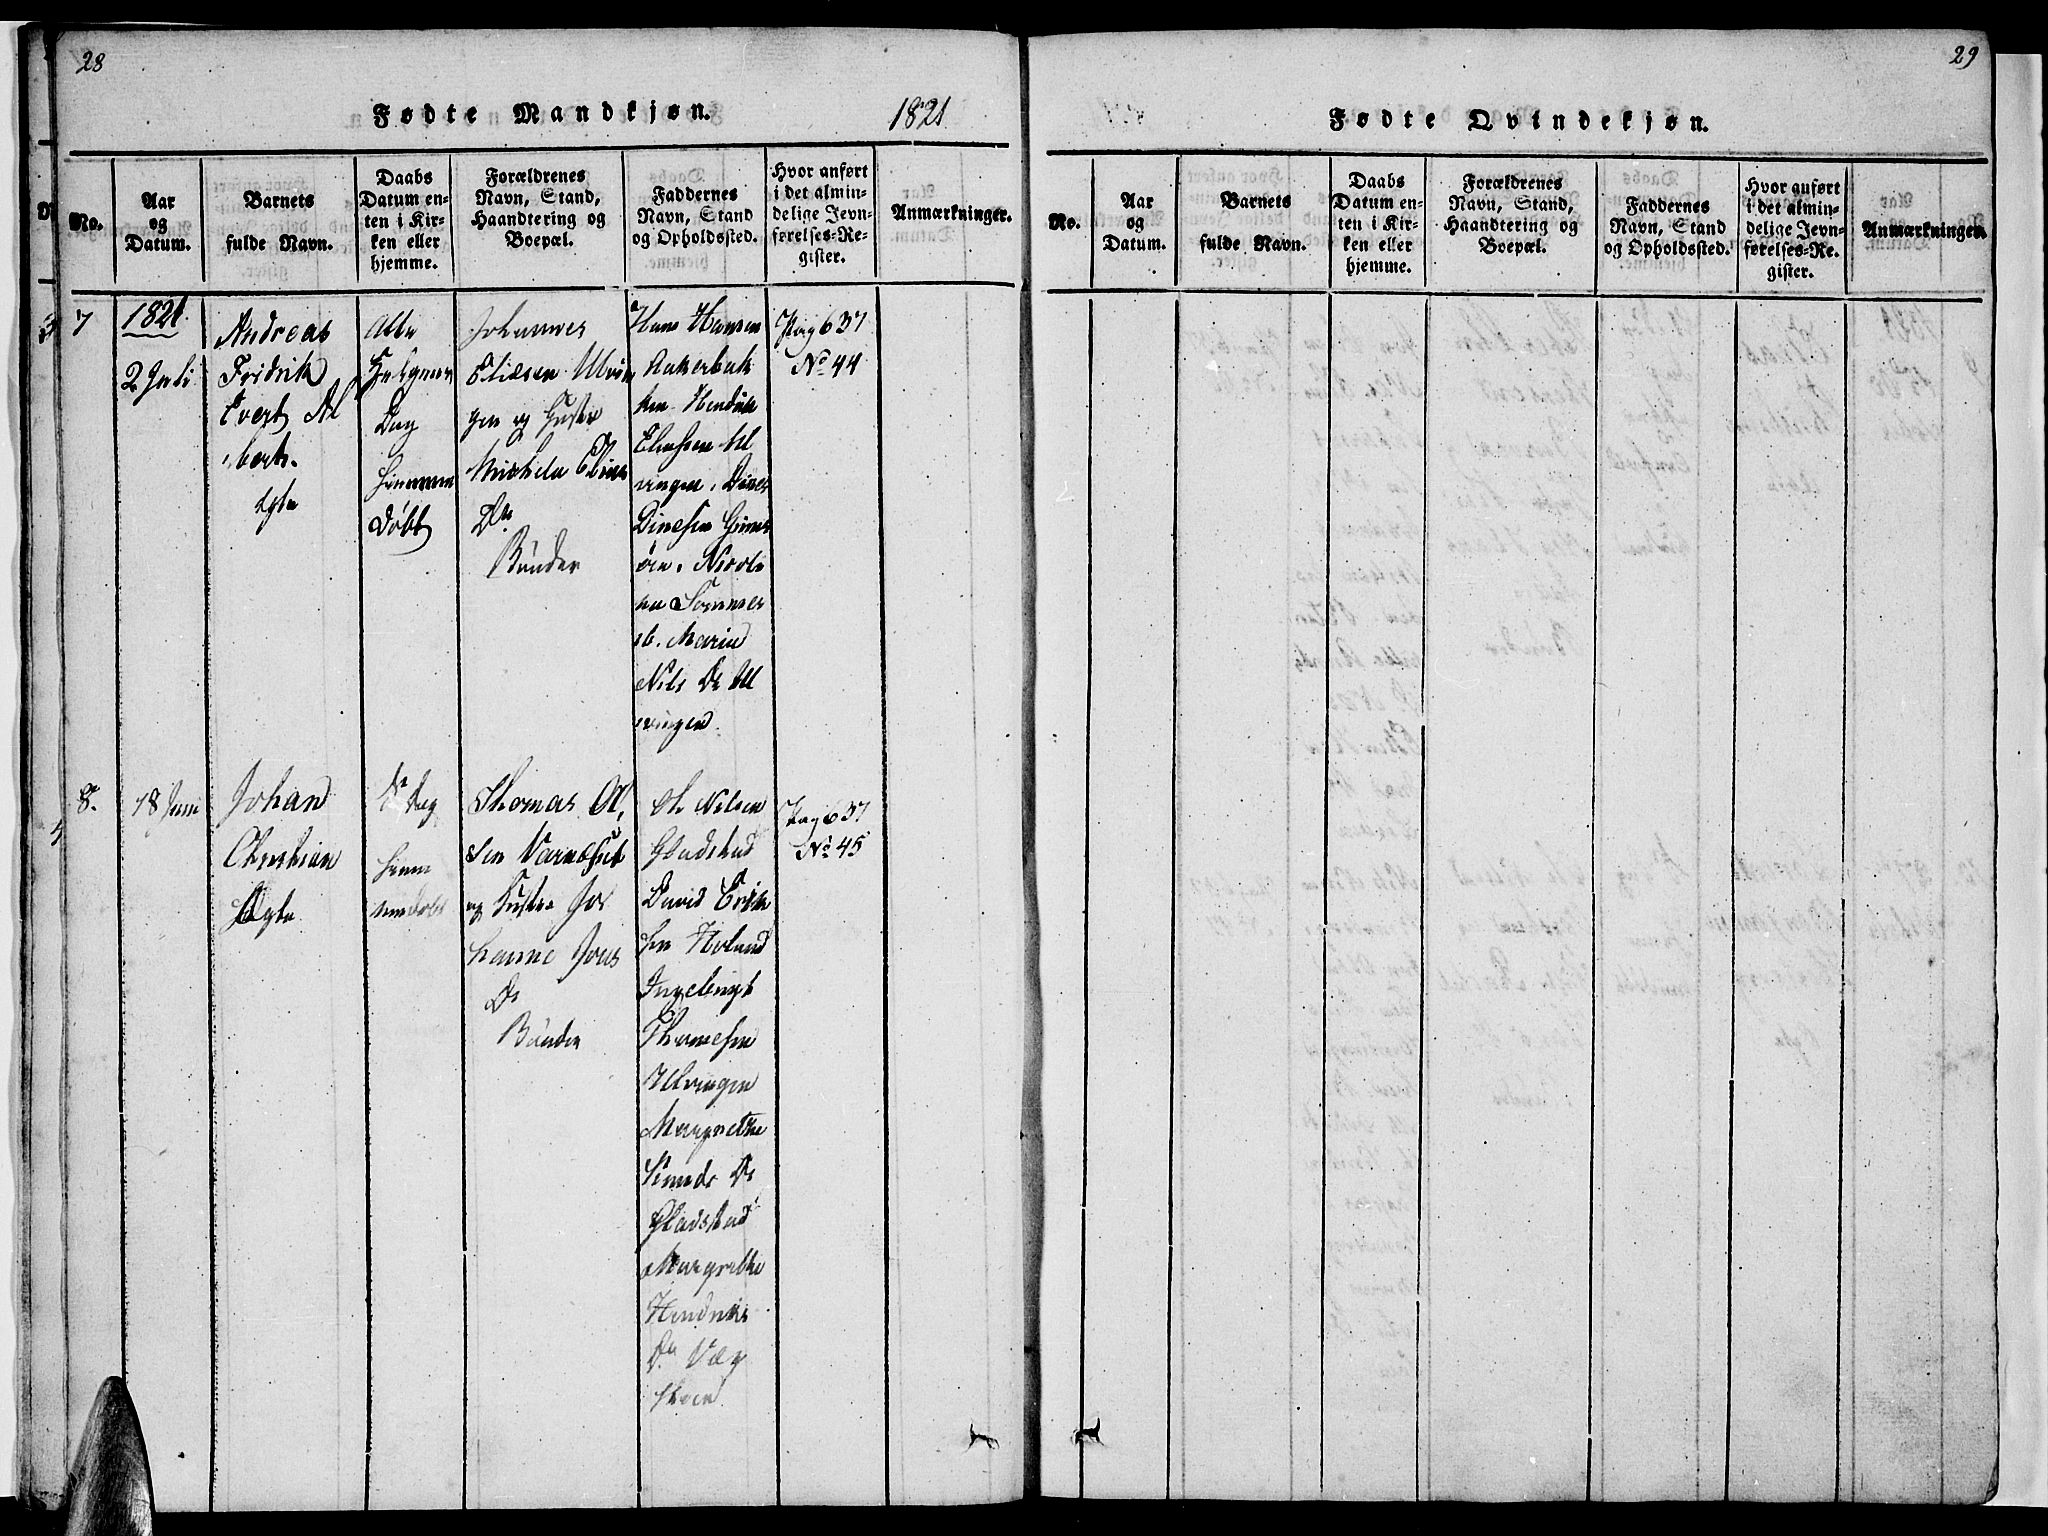 28
Fødte Mandkjøn.
1821
No.
Aar
og
Datum.
Barnets
fulde Navn.
Daabs
Datum en-
ten i Kir-
ken eller
hjemme.
Forældrenes
Navn, Stand,
Haandtering og
Boepæl.
Faddernes
Navn, Stand
og Opholdssted.
Hvor anført
i det almin-
delige Jevn-
førelses-Re-
gister.
Anmærkninger.
7
1821
2 Juli
Andreas
Fridrik
Evert Al
bert.
ægte
Alle
Helgener
Dag
hiemme
døbt
Johannes
Eliesen Ulvin
gen og Hustr
Elies
Dr
Bønder
Hans Hansen
Hendrik
Eliesen Ul
vingen, Dines
Dinesen
Nicoli
ne Sommer
Marie
Nils Dr Ul
vingen.
Pag 637
No 44
8.
18 Juni
Johan
Christian
Ægte
Dr Dag
hiem
medøbt
Thomas Ol
sen
og Hustr Jo
hanne Jons
Dr
Bønder
Nilsen
Gladstad
David Erik
sen
Ingebrigt
Thomesen
Ulvingen
Margrethe
Dr
Gladstad
Margrethe
Hendriks
Dr Væg
Pag 637
No 45
29
Fødte Qvindekjøn.
No.
Aar
og
Datum.
Barnets
fulde Navn.
Daabs
Datum en-
ten i Kir-
ken eller
hjemme.
Forældrenes
Navn, Stand,
Haandtering og
Boepæl.
Faddernes
Navn, Stand
og Opholdssted.
Hvor anført
i det almin-
delige Jevn-
førelses-Re-
gister.
Anmærkninger.